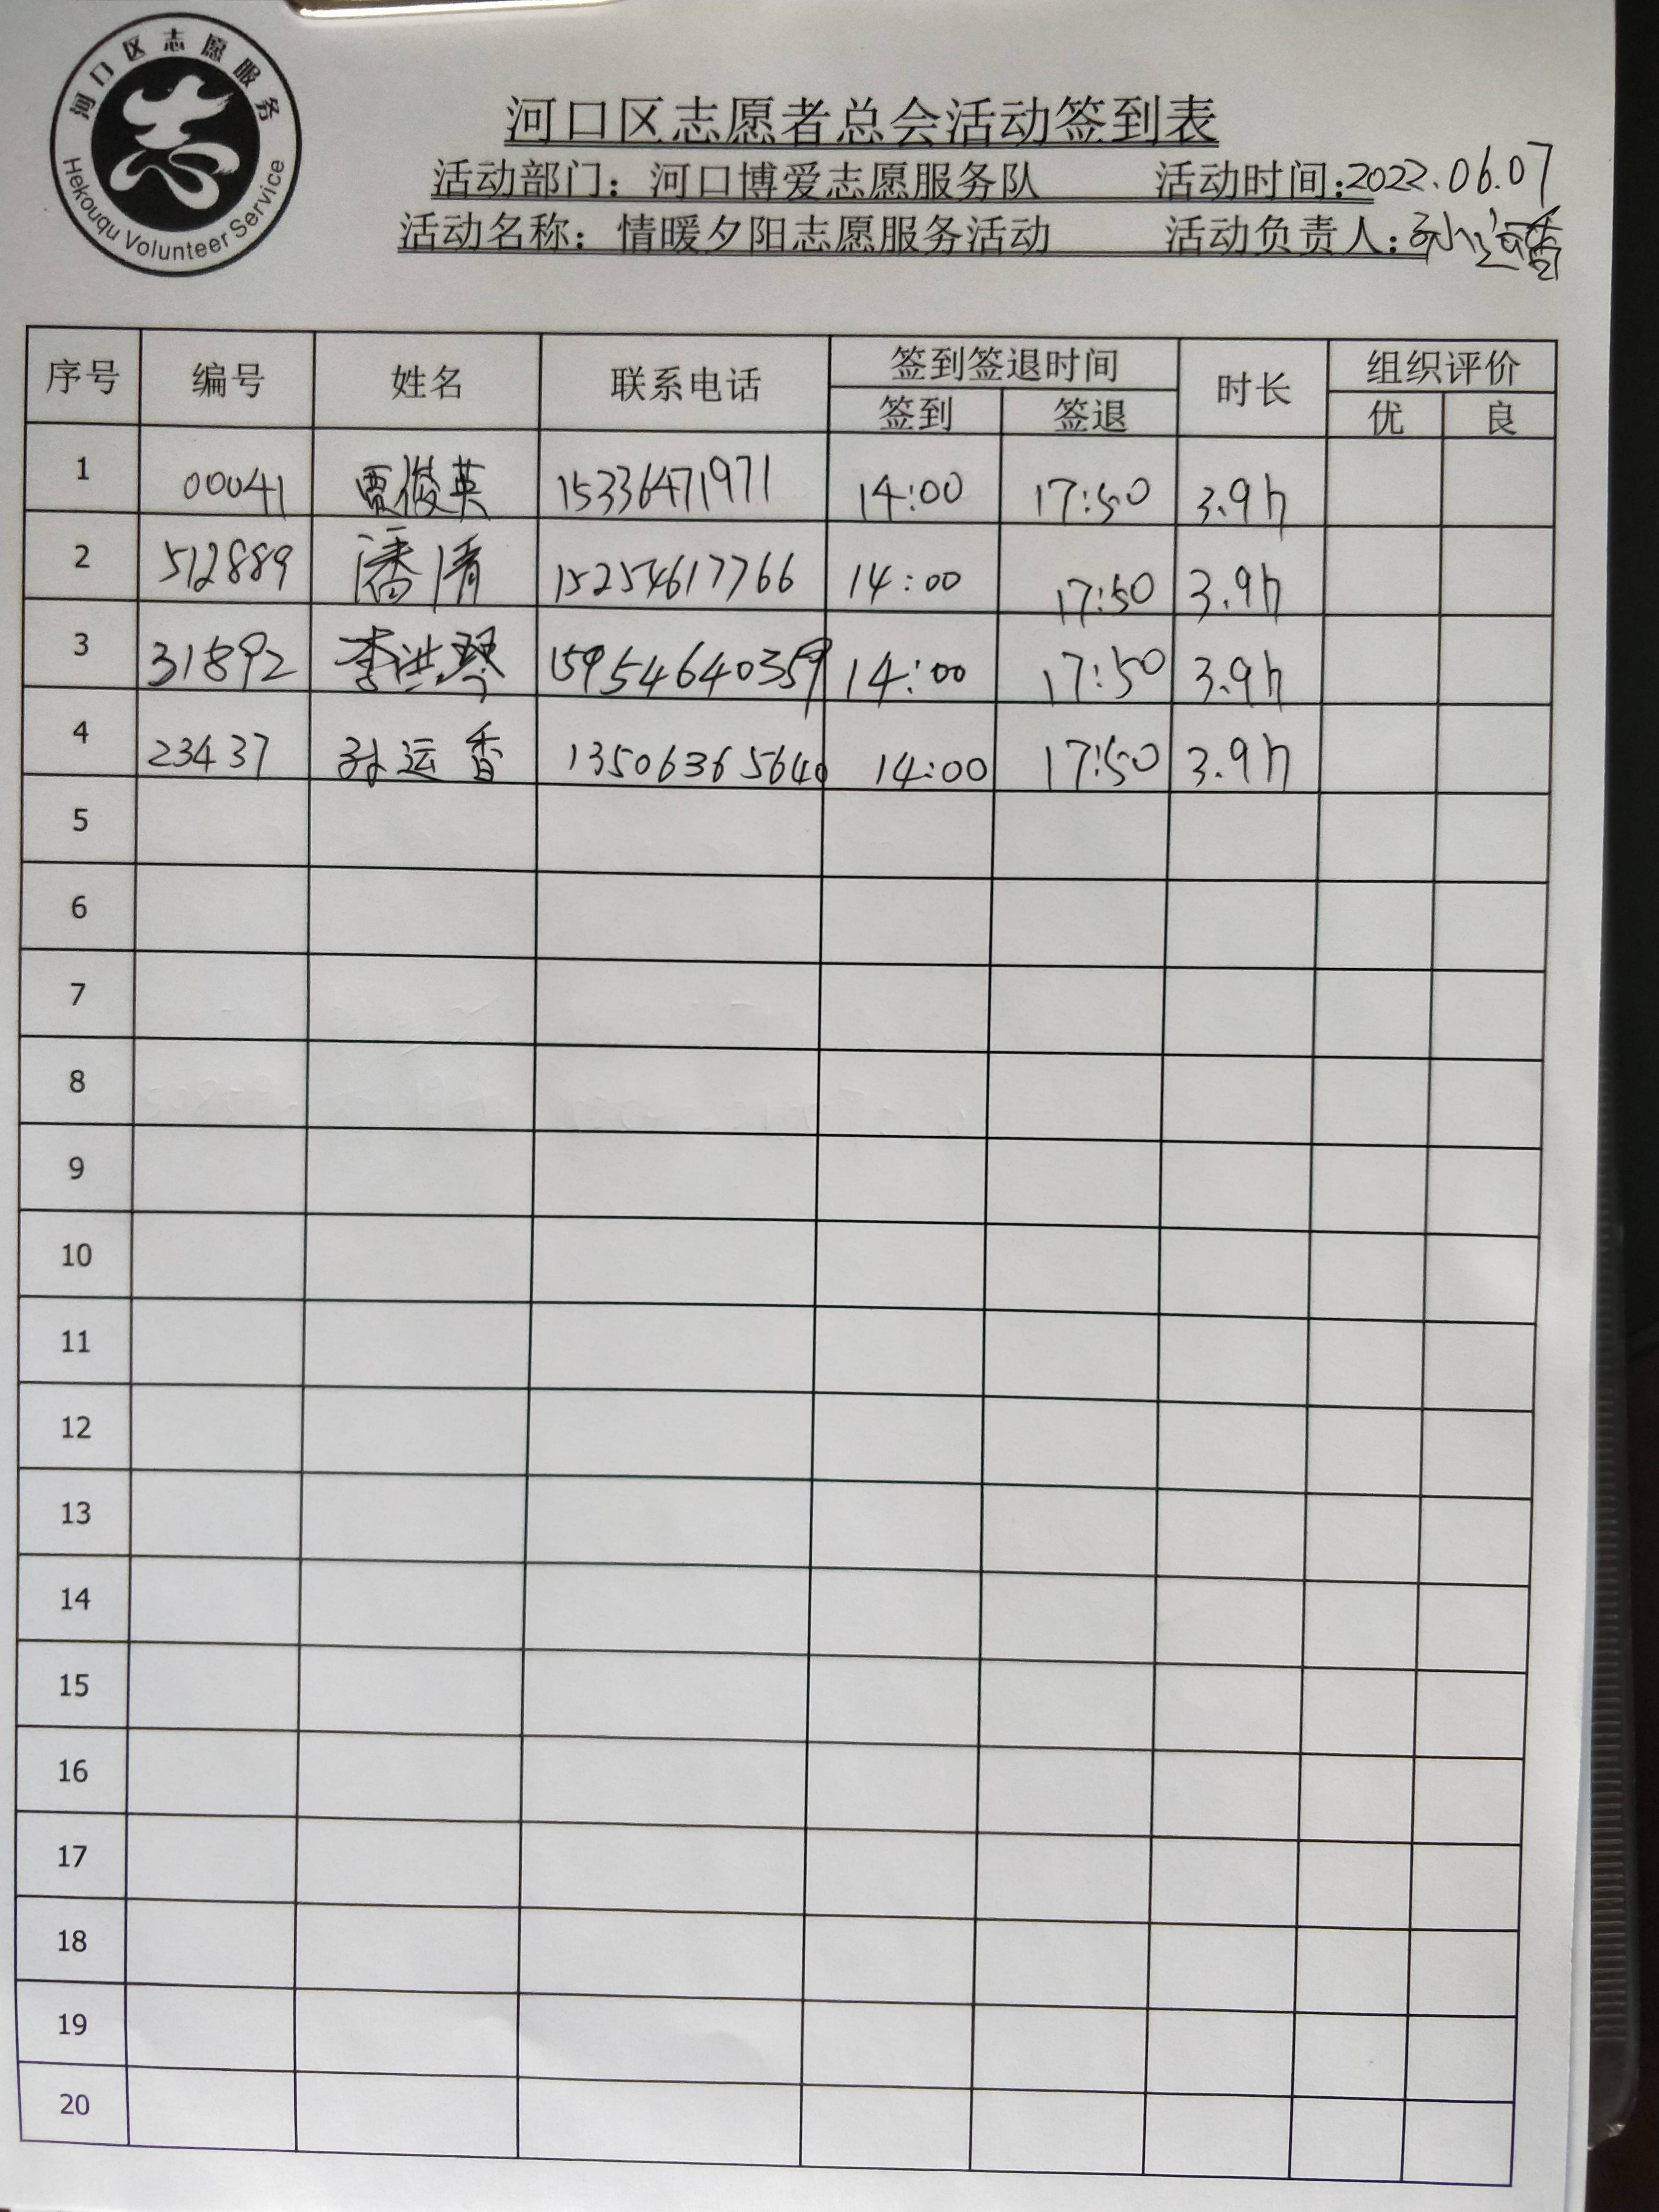 河口区志愿服务
Hekouqu Volunteer Service
河口区志愿者总会活动签到表
活动部门：河口博爱志愿服务队 活动时间：2022.06.07
活动名称：情暖夕阳志愿服务活动 活动负责人：孙运香
序号 编号 姓名 联系电话 签到签退时间 时长 组织评价
签到 签退 优 良
1 00041 贾俊英 15336471971 14:00 17:50 3.9h
2 512889 潘清 15254617766 14:00 17:50 3.9h
3 31892 李洪琴 15954640359 14:00 17:50 3.9h
4 23437 孙运香 13506365640 14:00 17:50 3.9h
5
6
7
8
9
10
11
12
13
14
15
16
17
18
19
20